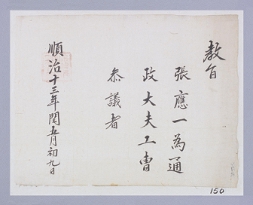 教旨
張應一為通
政大夫工曹
叅議者
順治十三年閏五月初九日
150